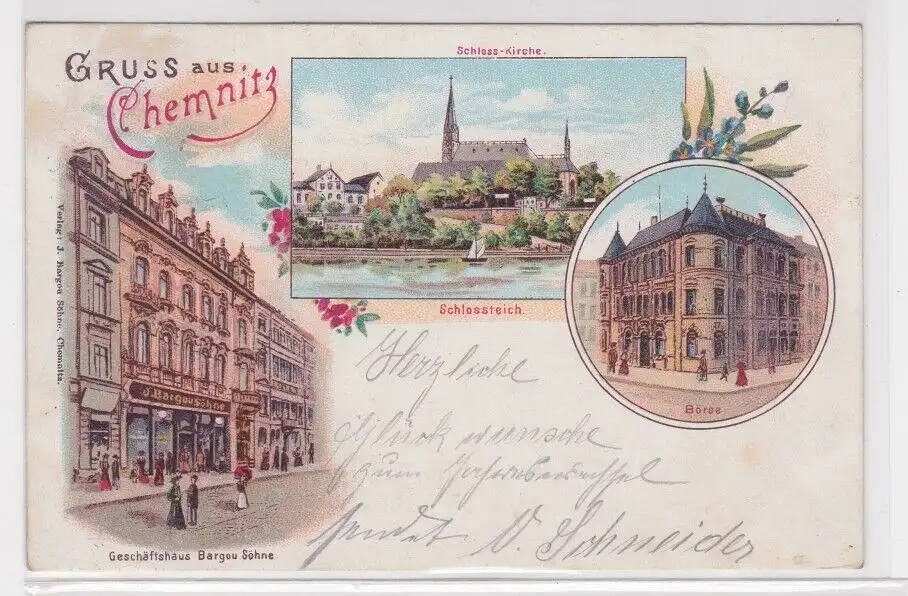 GRUSS aus
Chemnitz
Schloss-Kirche.
Schlossteich
Börse
Verlag: J. Bargou Söhne, Chemnitz.
J. Bargou Söhne
Geschäftshaus Bargou Söhne
Herzliche
Glückwunsche
zum Jahreswechsel
sendet V. Schneider